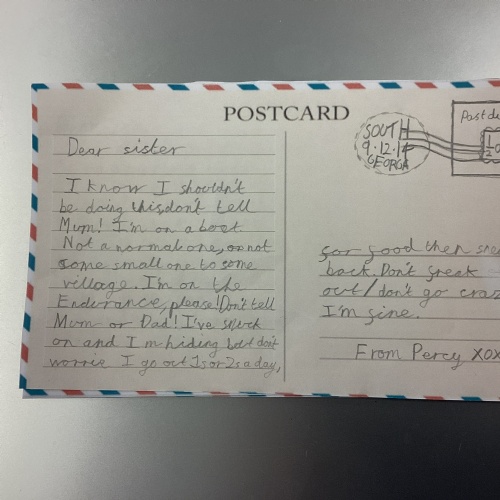 POSTCARD
Dear sister
I know I shouldn't
be doing this,don't tell
Mum! I'm on a boat.
Not a normal one, or not
some small one to some
village. I'm on the
Endurance, please! Don't tell
Mum or Dad! I've snuck
on and I'm hiding but don't
worrie I go out 1s or 2s a day,
SOUTH
9.12.14
GEORGA
Post
1
2
for food then
back. Don't freak
out/don't go
I'm fine.
From Percy XOX